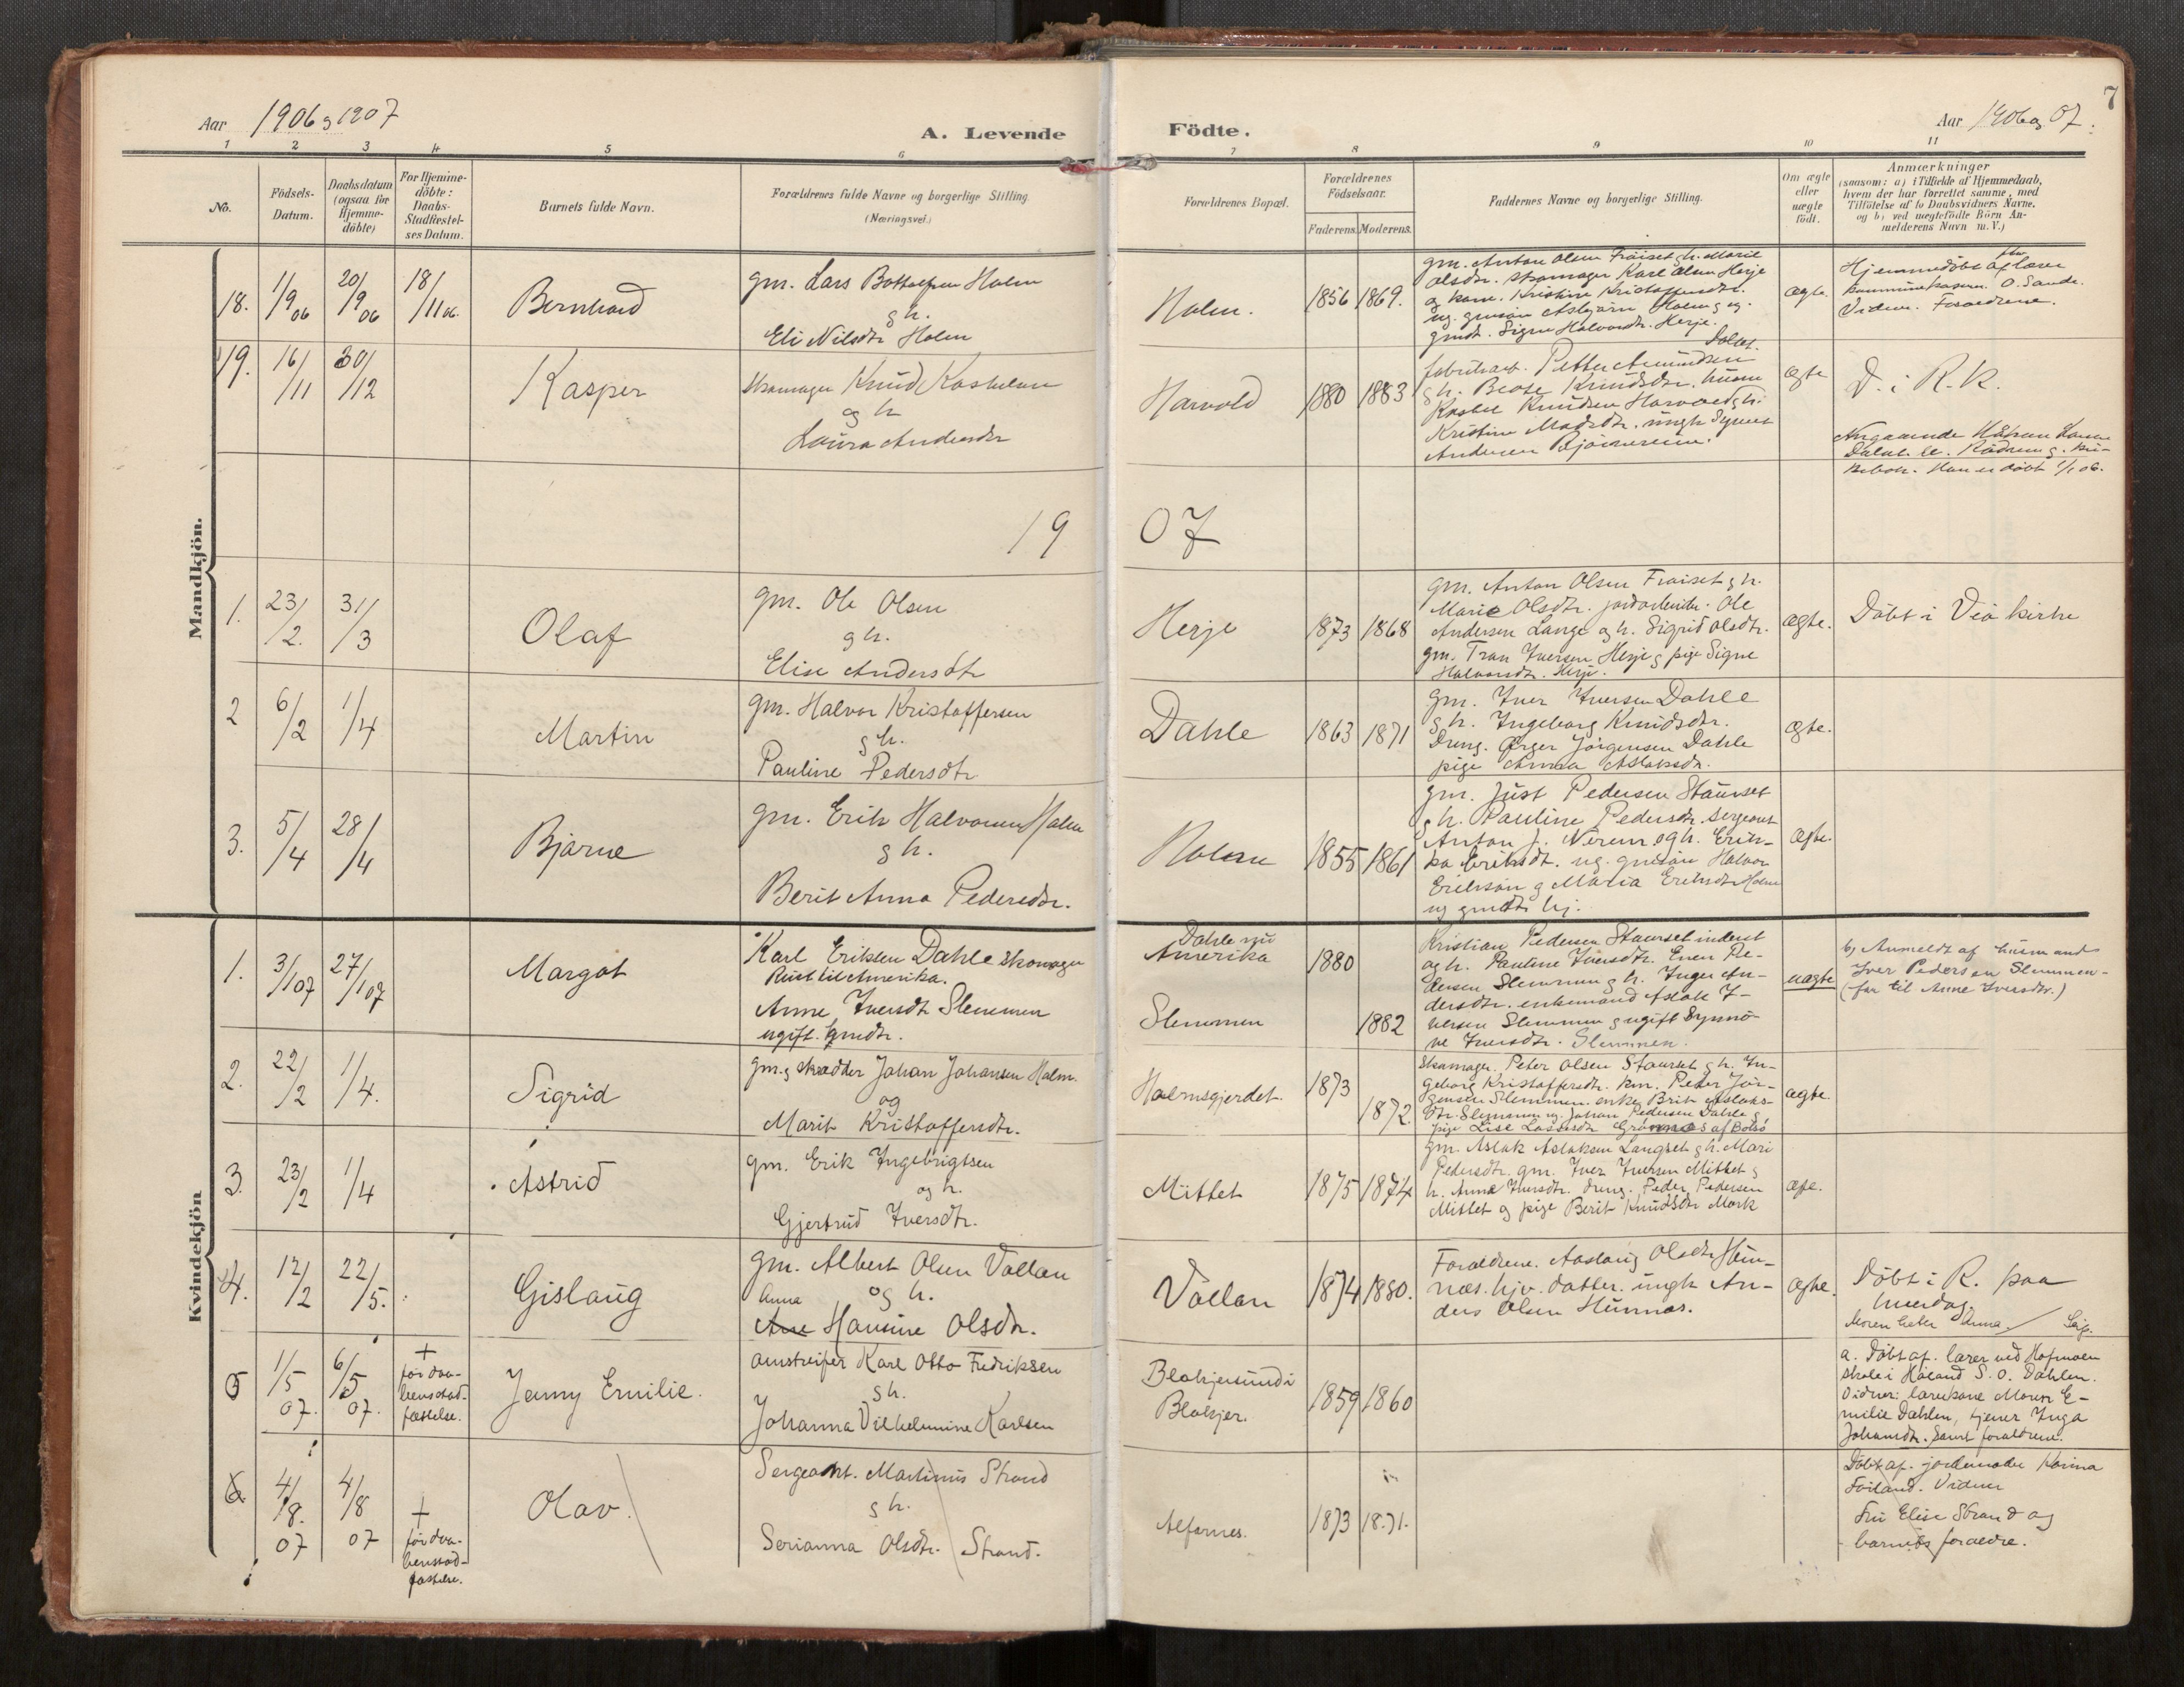 7
Aar 1906 g 1907
A. Levende
Födte.
Aar 1906 g 07.
1 2 3 4 5 6 7 8 9 10 11
No.
Födsels-
Datum.
Daabsdatum
(ogsaa for
Hjemme-
döbte)
For Hjemme-
döbte:
Daabs-
Stadfæstel-
ses Datum.
Barnets fulde Navn.
Forældrenes fulde Navne og borgerlige Stilling
(Næringsvei.)
Forældrenes Bopæl.
Forældrenes
Födselsaar.
Faderens. Moderens.
Faddernes Navne og borgerlige Stilling.
Om ægte
eller
uægte
født.
Anmærkninger
(saasom: a) i Tilfælde af Hjemmedaab,
hvem der har forrettet samme, med
Tilföielse af to Daabsvidners Navne.
og b) ved uægtefödte Börn An-
melderens Navn m. V.)
Mandkjön.
18.
1/9 06
20/9 06
18/11 06.
Bernhard
gm. Lars Bottolfsen Holm
g h.
Eli Nilsdtr Holm
Holm.
1856 1869.
gm. Anton Olsen Fraiset g h. Marie
Olsdtr. skomager Karl Olsen Herje
og kone. Kristine Kristoffersdtr.
ug. gmsøn Asbjørn Holm g ug.
gmdt. Signe Halvorsdtr. Herje.
ægte.
Hjemmedöbt af lærer
O. Sande.
Vidner. Forældrene.
19.
16/11
30/12
Kasper
Skomager Knud Kastelsen
og h
Laura Andersdtr
Harvold
1880 1883
fabrikarb. Petter Amundsen
g h. Beate Knudsdtr. husm
Kastel Knudsen Harvold g h.
Kristine Madsdtr. ungk Synnes
Andersen Bjørnereim.
ægte
D. i R. K.
Angaaende Håkon Larsen
Dalset se. Rødven g. kir-
kebok. Han er døbt 1/1 06.
19 07
1.
23/2.
31/3
Olaf
gm. Ole Olsen
g h.
Elise Andersdtr
Herje
1873 1868
gm. Anton Olsen Fraiset g h.
Marie Olsdtr. jordarbeider. Ole
Andersen Lange og h. Sigrid Olsdtr.
gm. Tran Iversen Herje g pige Signe
Halvorsdtr. Herje.
ægte.
Döbt i Veö kirke
2
6/2
1/4
Martin
gm. Halvor Kristoffersen
g h.
Pauline Pedersdtr
Dahle
1863 1871
gm. Iver Iversen Dahle
g h. Ingeborg Knudsdtr.
dreng. Ørger Jörgensen Dahle
pige Anna Aslaksdtr.
ægte.
3.
5/4
28/4
Bjarne
gm. Erik Halvorsen Holm
g h.
Berit Anna Pedersdtr.
Holm
1855 1861
gm. Just Pedersen Staurset
g h. Pauline Pedersdtr. sergeant
Anton J. Nerem og h. Erik-
ka Eriksdt. ug. gmsøn Halvor
Eriksøn g Maria Eriksdtr Holm
ug gmdtr hj.
ægte.
Kvindekjön
1.
3/1 07
27/1 07
Margot
Karl Eriksen Dahle skomager
Reist til Amerika.
Anne Iversdtr Slemmen
ugift. gmdtr.
Dahle nu
Amerika
Slemmen
1880
1882
Kristian Pedersen Staurset inderst
og h. Pauline Iversdtr. Even Pe-
dersen Slemmen g h. Inger An-
dersdtr. enkemand Aslak I-
versen Slemmen g ugift Synnö-
ve Iversdtr. Slemmen.
uægte
b, Anmeldt af husmand
Iver Pedersen Slemmen-
(far til Anne Iversdtr.)
2.
22/2
1/4.
Sigrid
gm. g skrædder Johan Johansen Holm.
og
Marit Kristoffersdtr.
Holmsgjerdet.
1873
1872.
Skomager. Peter Olsen Staurset g h. In-
geborg Kristoffersdtr. km. Peter Jör-
gensen Slemmen. enke Brit Aslaks-
dtr. Slemmen ug. Johan Pedersen Dahle g
pige Lise Larsdtr Grønnes af Bolsö
ægte.
3.
23/2
1/4
Astrid
gm. Erik Ingebrigtsen
og h.
Gjertrud Iversdtr.
Mittet
1875 1874
gm. Aslak Aslaksen Langset g h. Mari
Pedersdtr. gm. Iver Iversen Mittet g
h. Anne Iversdtr. dreng. Peder Pedersen
Mittet og pige Berit Knudsdtr Mork
ægte.
4.
12/2
22/5.
Gislaug
gm. Albert Olsen Vollan
Anna og h.
Ane Hansine Olsdtr.
Vollan
1874 1880.
Forældrene. Aaslaug Olsdtr Hun-
næs. hjv. datter. ungk An-
ders Olsen Hunnæs.
ægte.
Döbt i R. paa
hverdag.
Moren heter Anna.
5
1/5 07.
6/5 07.
+
før daa-
bens stad-
fæstelse.
Jenny Emilie.
Karl Otto Fredriksen
g h.
Johanna Vilhelmine Karlsen
Blakjersund i
Blakjer.
1859 1860
a. Döbt af. lærer ved Hofmoen
skole i Høland S. O. Dahlen.
Vidner: lærerkone Maren E-
milie Dahlen, tjener Inga
Johansdtr. samt forældrene.
6
4/8. 07
4/8 07
+
før daa-
bens stad-
fæstelse.
Olav.
Sergeant. Martinus Strand
g h.
Serianna Olsdtr. Strand.
Alfarnes.
1873 1871.
Döbt af. jordemoder Karina
Vidner
Fru Elise Strand og
barnets forældre.